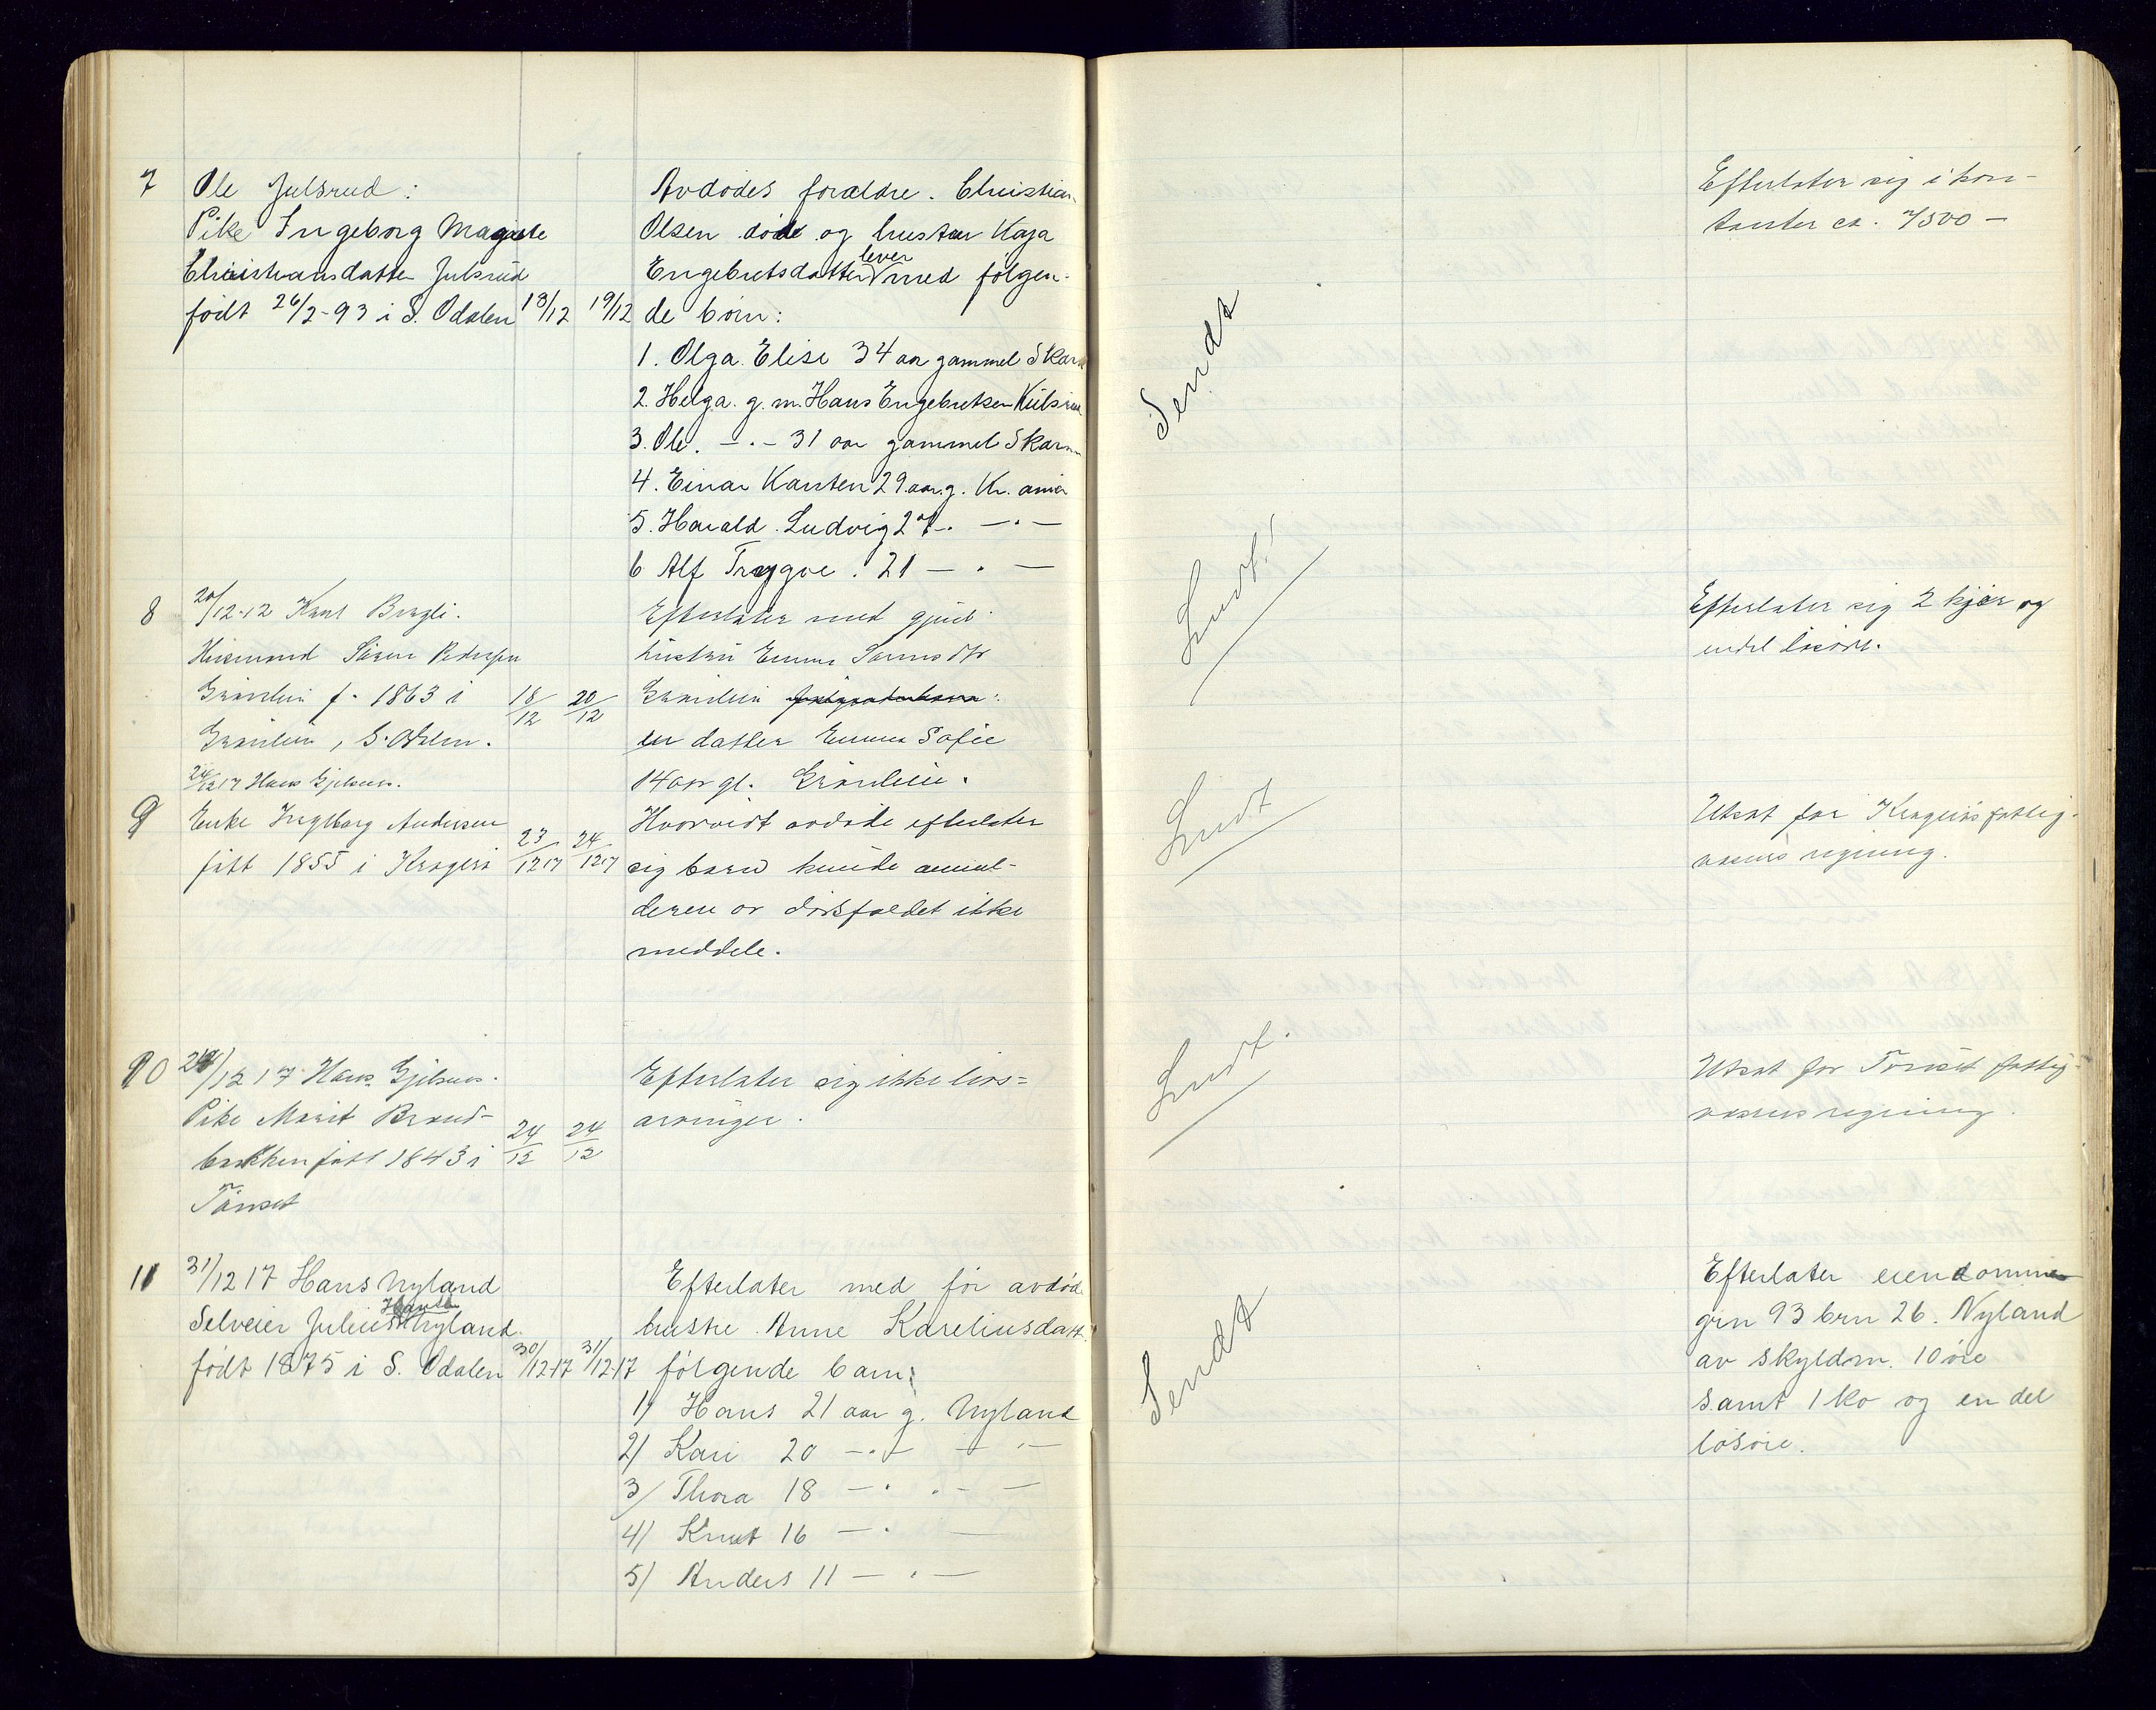 7 Ole Julsrud:
Pike Ingeborg Magnete
Christiansdatter Julsrud
født 26/2-93 i S. Odalen 13/12 19/12
Avdødes foræeldre. Christian
Olsen døde og hustru Kaja
Engebretsdatter lever med følgen-
de børn:
1. Olga Elise 34 aar gammel Skarn
2. Helga g. m. Hans Engebretsen
3. Ole. -.- 31 aar gammel Skarn
4. Einar Karsten 29 aar g. Kr.ania
5. Harald Ludvig 27 -. -.-
6 Alf Trygve. 21 - . -
Sendt
Efterlater sig i kon-
tanter ca. 7500 -
8 20/12-12 Karl Bragli.
Husmand Søren Pedersen
Grønlien f. 1863 i 18/12 20/12
Grønlien, S. Odalen.
Efterlater med gjenl.
hustru Emma Sørensdtr
Grønlien
en datter Emma Sofie
14 aar gl. Grønlien.
Sendt!
Efterlater sig 2 kjør og
endel løsøre.
24/12 17 Hans Gjelsnes.
9 Enke Ingeborg Andersen
født 1855 i Kragerø 23/12 17 24/12 17
Hvorvidt avdøde efterlater
sig barn kunde anmel-
deren av dødsfaldet ikke
meddele.
Sendt
Utsat for Kragerøs fattig-
væsens regning.
10 24/12 17 Hans Gjelsnes.
Pike Marit Brand-
bakken født 1843 i 24/12 24/12
Tønset
Efterlater sig ikke livs=
arvinger.
Sendt.
Utsat for Tønset fattig-
væsens regning.
11 31/12 17 Hans Nyland
Selveier Julius Hansen Nyland.
født 1875 i S. Odalen 30/12-17 31/12-17
Efterlater med før avdød
hustru Anne Kareliusdatt.
følgende barn:
1) Hans 21 aar g. Nyland
2) Kari 20 -.- - . -
3) Thora 18 - . . - -
4) Knut 16 - . -
5) Anders 11 - . -
Sendt
Efterlater eiendommen
grn 93 brn 26. Nyland
av skyldm. 10 øre
samt 1 ko og en del
løsøre.